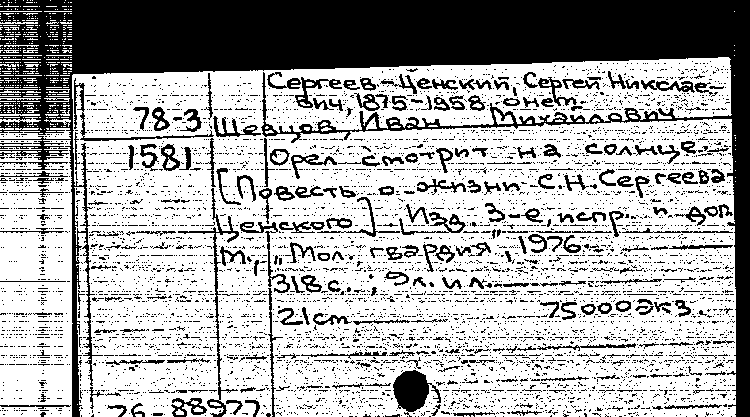 Сергеев-Ценский, Сергей Николае-
вич, 1875-1958, о нем.
78-3 Шевцов, Иван Михайлович
1581 Орел смотрит на солнце.
[Повесть о жизни С.Н. Сергеева-
Ценского]. [Изд. 3-е, испр. и доп.
М., "Мол. гвардия", 1976.
318 с.; 9 л. ил.
21 cm 75000 экз.
76-88977.